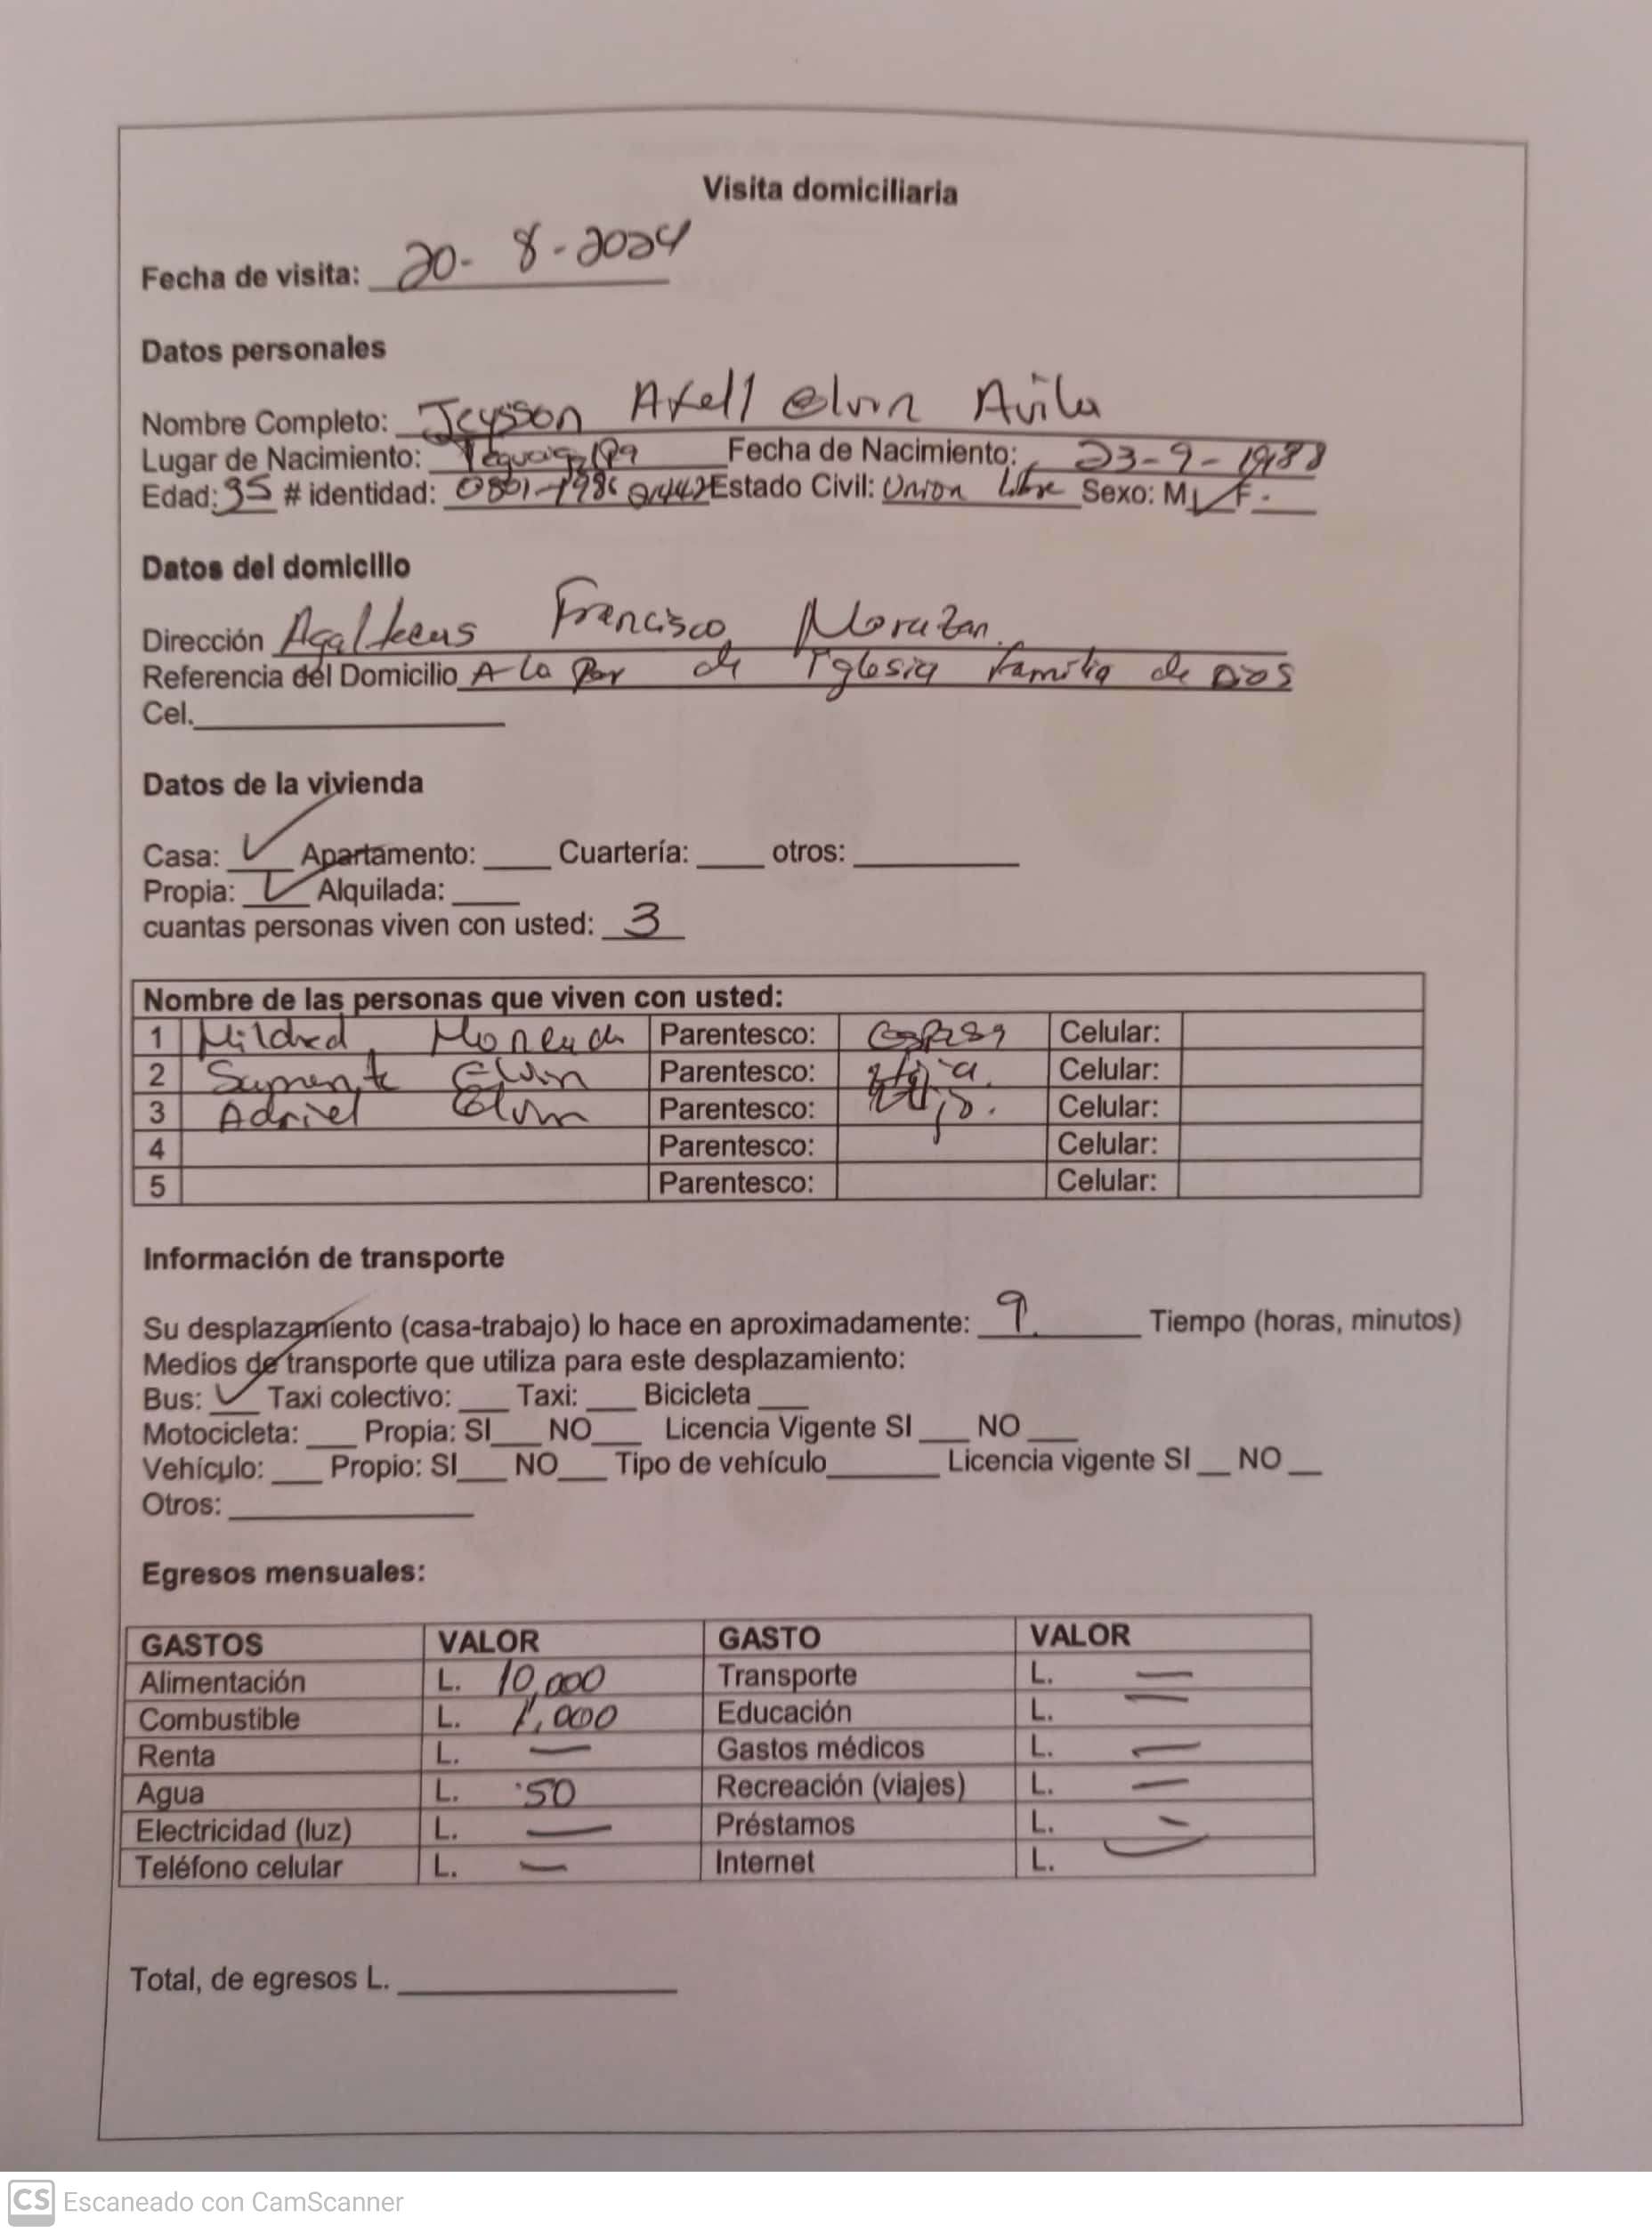 Visita domiciliaria
Fecha de visita: 20-8-2024
Datos personales
Nombre Completo: Jeysson Axell Elvin Avila
Lugar de Nacimiento: Tegucigalpa Fecha de Nacimiento: 23-9-1988
Edad: 35 # identidad: Estado Civil: Union Libre Sexo: M ✓ F.
Datos del domicilio
Dirección Francisco Morazan.
Referencia del Domicilio A La Par de Iglesia familia de Dios
Cel.
Datos de la vivienda
Casa: ✓ Apartamento: ____ Cuartería: ____ otros: ____
Propia: ✓ Alquilada: ____
cuantas personas viven con usted: 3
Nombre de las personas que viven con usted:
1 Mildred Parentesco: Esposa Celular:
2 Elvin Parentesco: Hija. Celular:
3 Adriel Elvin Parentesco: Hijo. Celular:
4 Parentesco: Celular:
5 Parentesco: Celular:
Información de transporte
Su desplazamiento (casa-trabajo) lo hace en aproximadamente: Tiempo (horas, minutos)
Medios de transporte que utiliza para este desplazamiento:
Bus: ✓ Taxi colectivo: ____ Taxi: ____ Bicicleta ____
Motocicleta: ____ Propia: SI____ NO____ Licencia Vigente SI ____ NO ____
Vehículo: ____ Propio: SI____ NO____ Tipo de vehículo____ Licencia vigente SI __ NO __
Otros: ____
Egresos mensuales:
GASTOS VALOR GASTO VALOR
Alimentación L. 10,000 Transporte L. —
Combustible L. 1,000 Educación L. —
Renta L. — Gastos médicos L. —
Agua L. 50 Recreación (viajes) L. —
Electricidad (luz) L. — Préstamos L. –
Teléfono celular L. — Internet L. —
Total, de egresos L. ____
CS Escaneado con CamScanner